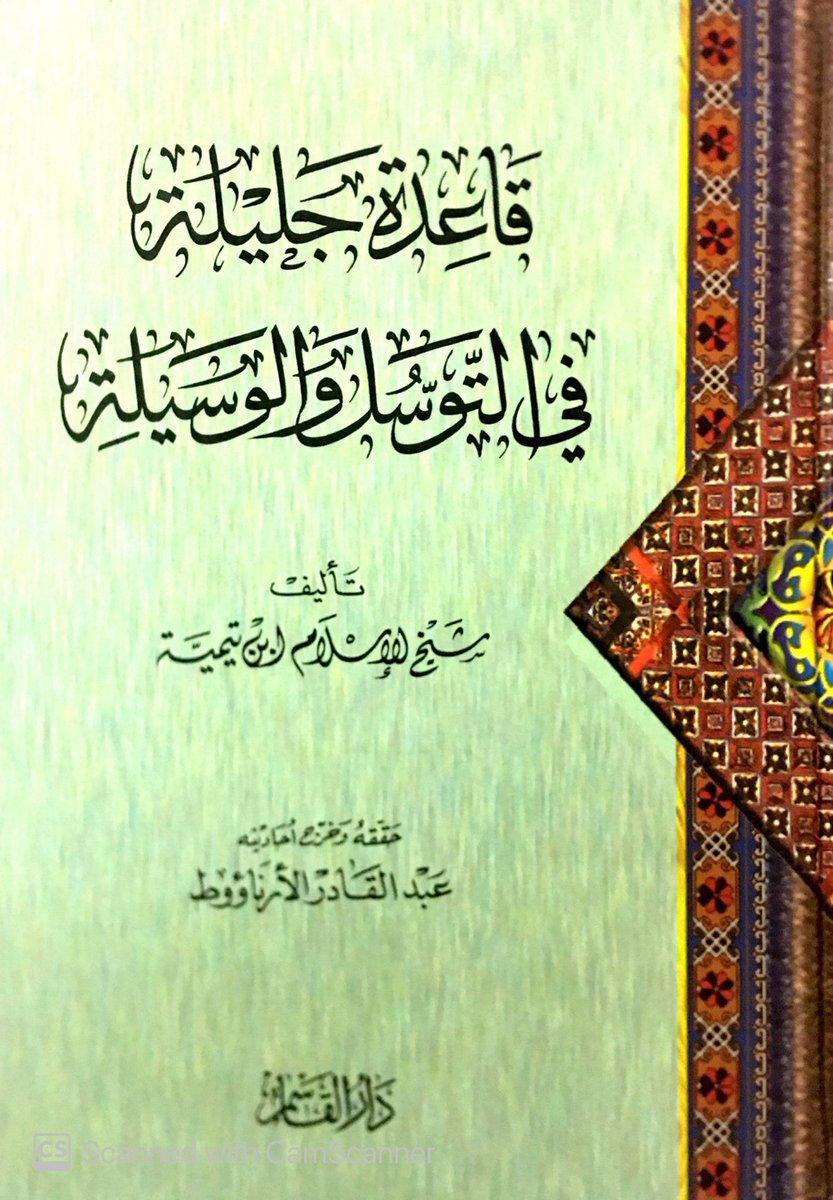 قَاعِدَة جَلِيْلَة
في التَّوسُّل وَالوَسِيَلةِ
تَأليفْ
شَيْخ الإِسْلَام ابن تيميَّة
حَقّقهُ وَخرّج أحَاديثه
عَبْد القَادر الأرنَاؤوط
دَارُ القَاسم
CS Scanned with CamScanner